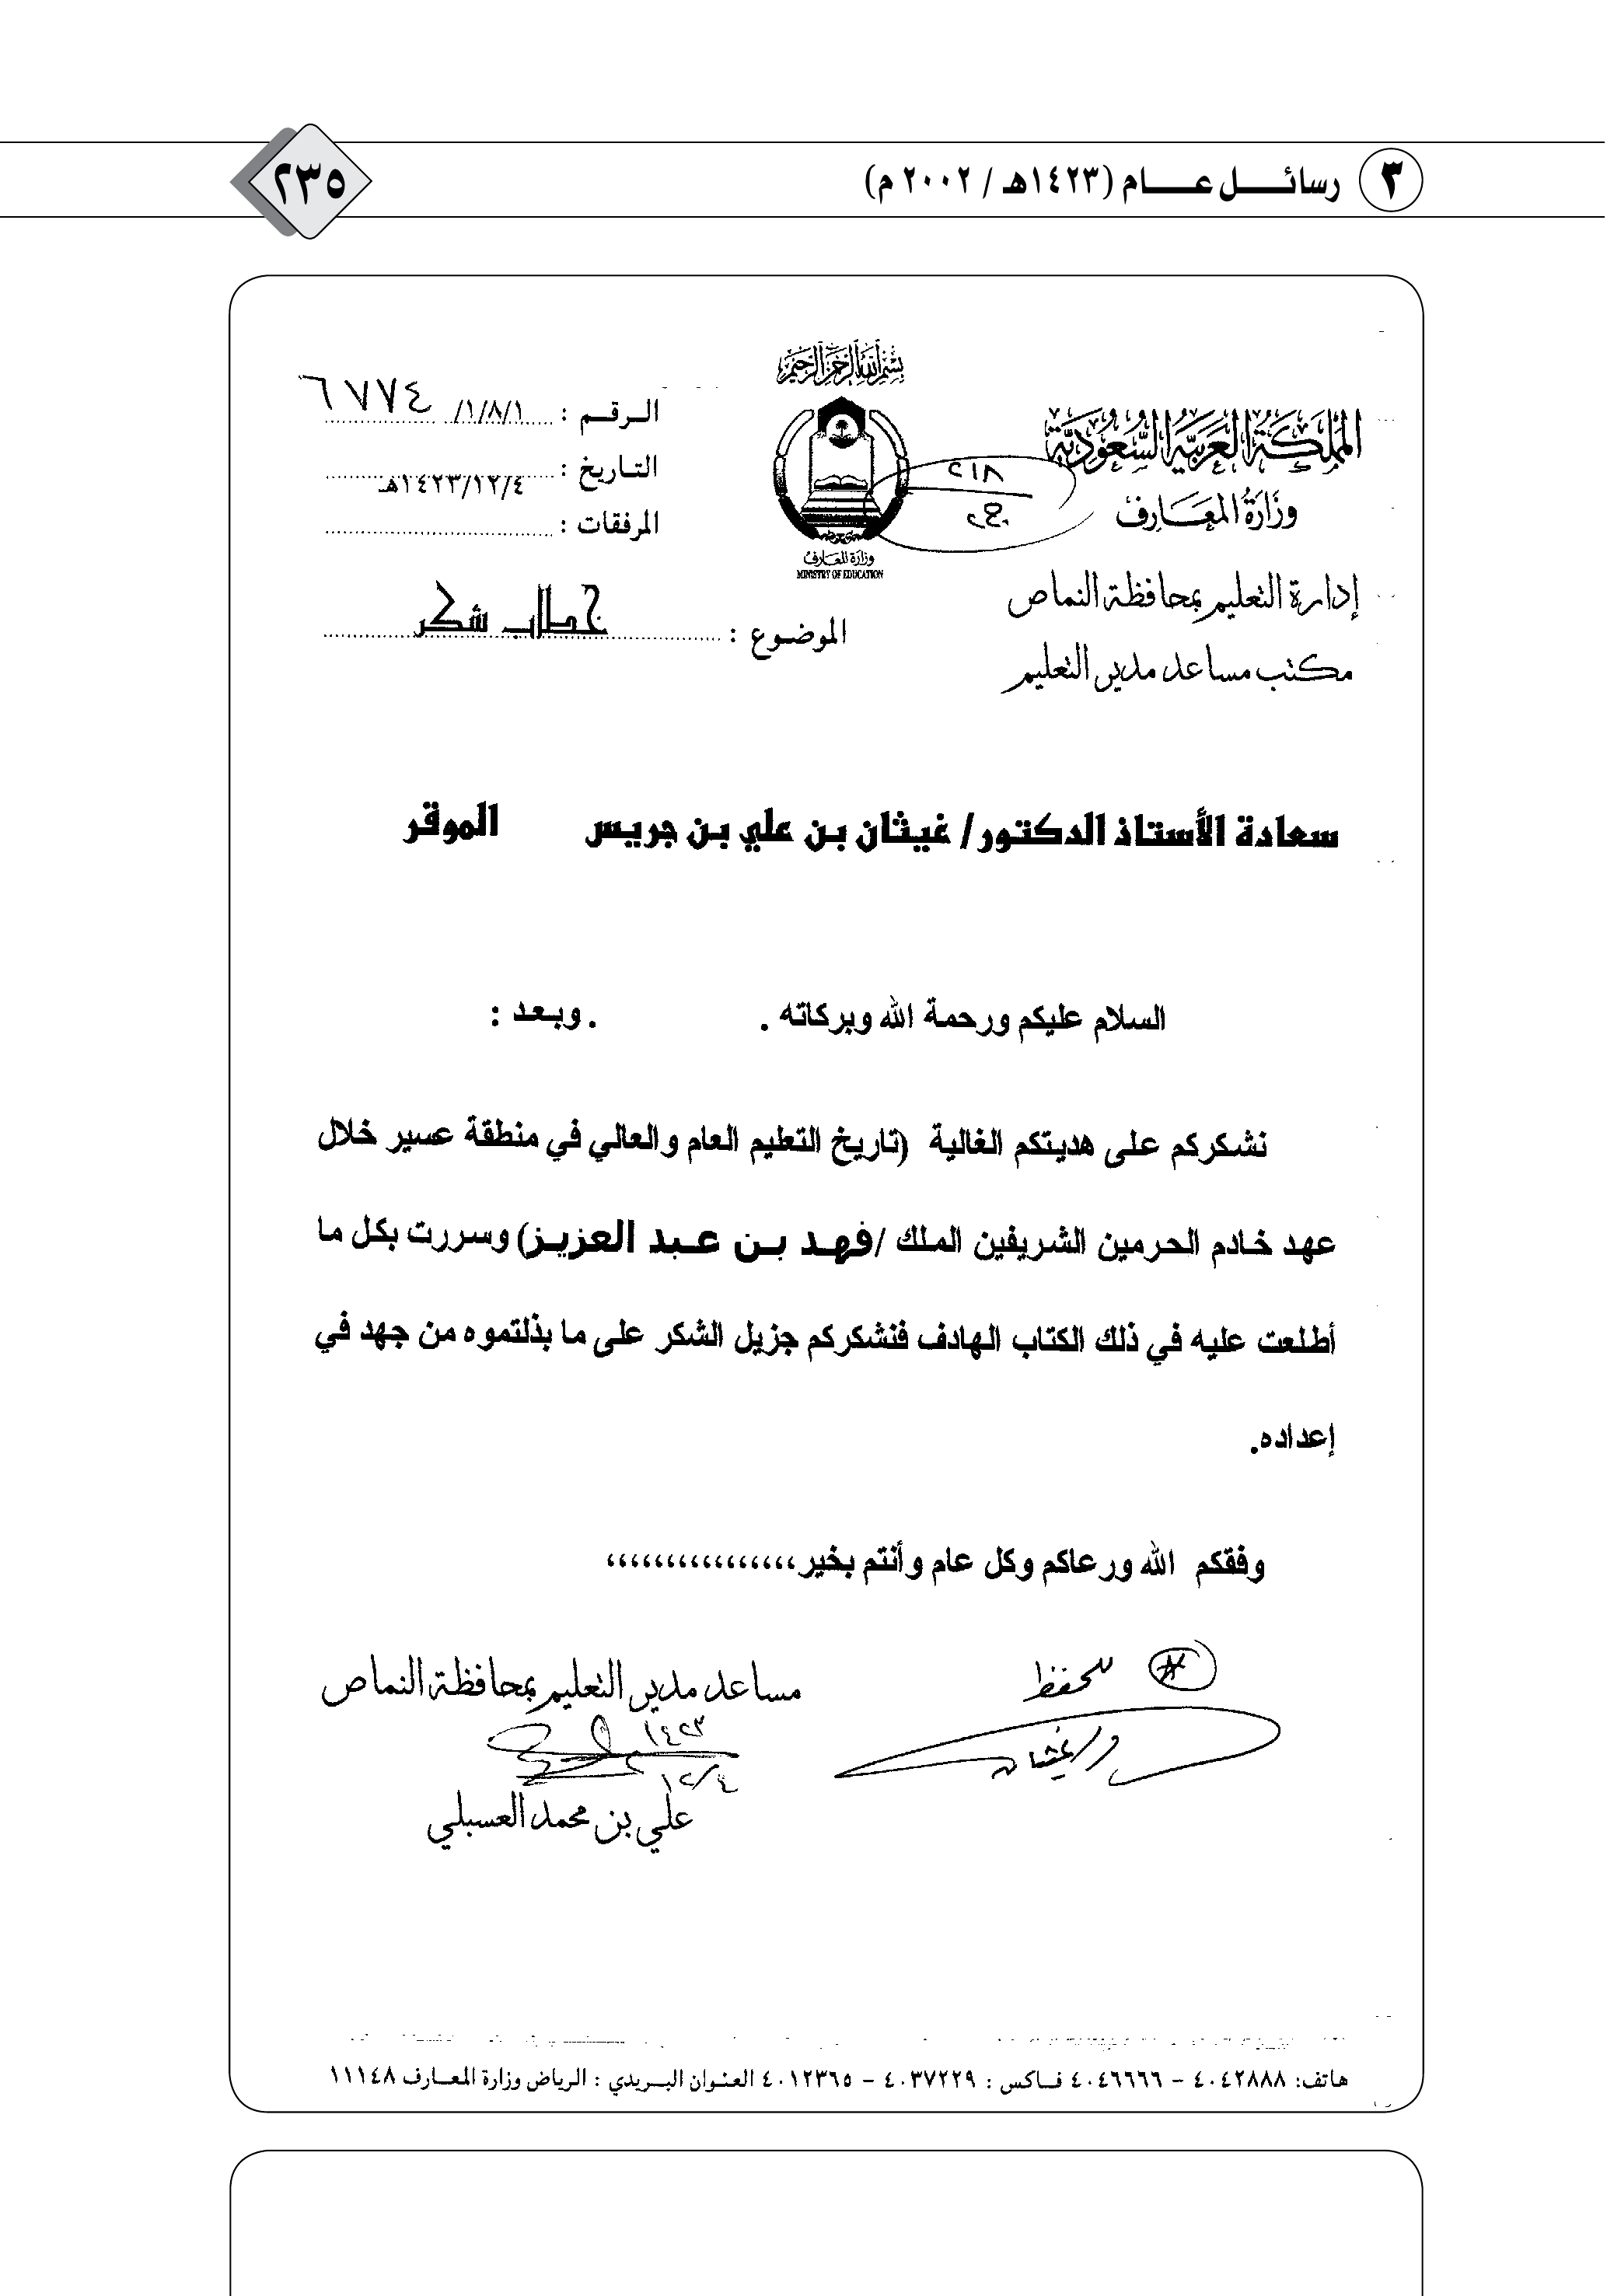 ٣ رسائل عام (١٤٢٣هـ / ٢٠٠٢ م)
٢٣٥
بسم الله الرحمن الرحيم
المملكة العربية السعودية
وزارة المعارف
إدارة التعليم بمحافظة النماص
مكتب مساعد مدير التعليم
وزارة المعارف
MINISTRY OF EDUCATION
٢١٨
الرقم : ١/٨/١/ ٦٧٧٤
التاريخ : ١٤٢٣/١٢/٤هـ
المرفقات :
الموضوع : خطاب شكر
سعادة الأستاذ الدكتور/ غيثان بن علي بن جريس الموقر
السلام عليكم ورحمة الله وبركاته . . وبعد :
نشكركم على هديتكم الغالية (تاريخ التعليم العام والعالي في منطقة عسير خلال
عهد خادم الحرمين الشريفين الملك /فهد بن عبد العزيز) وسررت بكل ما
أطلعت عليه في ذلك الكتاب الهادف فنشكركم جزيل الشكر على ما بذلتموه من جهد في
إعداده.
وفقكم الله ورعاكم وكل عام وأنتم بخير،،،،،،،،،،،،،،،،
للحفظ
مساعد مدير التعليم بمحافظة النماص
١٤٢٣
١٢/٤
علي بن محمد العسبلي
هاتف: ٤٠٤٢٨٨٨ - ٤٠٤٦٦٦٦ فاكس : ٤٠٣٧٢٢٩ - ٤٠١٢٣٦٥ العنوان البريدي : الرياض وزارة المعارف ١١١٤٨